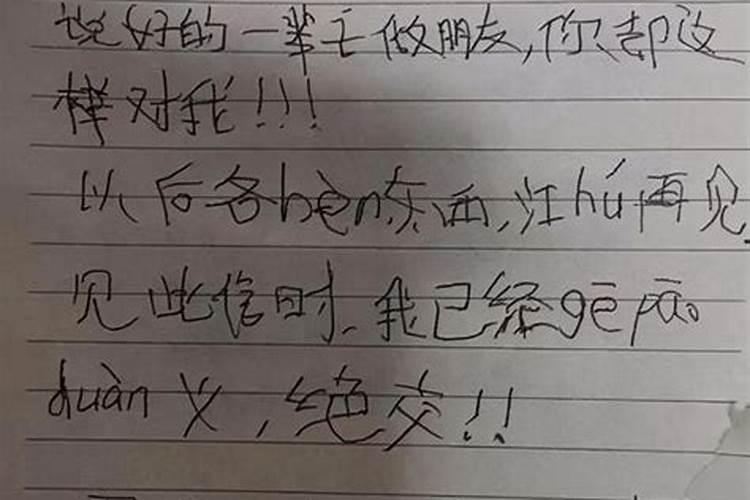 说好的一辈子做朋友,你却这
样对我!!!
以后各bèn东西,江hú再见.
见此信时、我已经gē pāo
duàn义,绝交!!